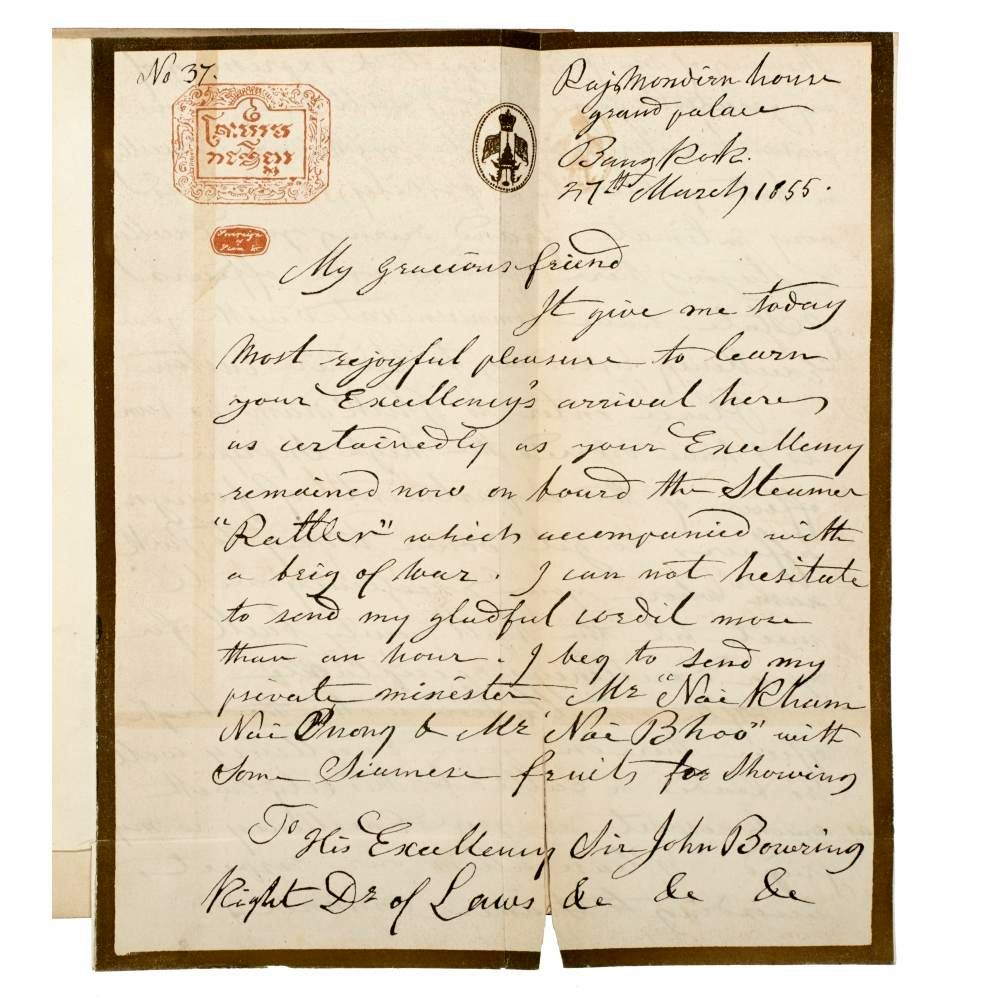 No 37.
Rajmondirn house
grand palace
Bangkok.
27th March 1855.
My gracious friend
It give me today
most rejoyful pleasure to learn
your Excellency's arrival here
as certainedly as your Excellency
remained now on board the Steamer
"Rattler" which accompanied with
a brig of war. I can not hesitate
to send my gladful cordil more
than an hour. I beg to send my
private minester Mr "Nai Kham
Nai &  Mr "Nai Bhoo" with
some Siamese fruits for showing
To His Excellency Sir John Bowring
Knight Dr of Laws &c &c &c